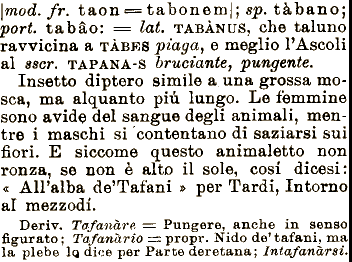 |mod. fr. taon = tabonem|; sp. tàbano;
port. tabâo: = lat. TABÀNUS, che taluno
ravvicina a TÀBES piaga, e meglio l'Ascoli
al sscr. TAPANA-S bruciante, pungente.
Insetto diptero simile a una grossa mo-
sca, ma alquanto piú lungo. Le femmine
sono avide del sangue degli animali, men-
tre i maschi si contentano di saziarsi sui
fiori. E siccome questo animaletto non
ronza, se non è alto il sole, cosí dicesi:
« All'alba de'Tafani » per Tardi, Intorno
al mezzodí.
Deriv. Tafanàre = Pungere, anche in senso
figurato; Tafanàrio = propr. Nido de' tafani, ma
la plebe lo dice per Parte deretana; Intafanàrsi.